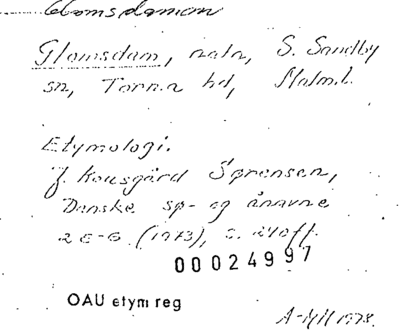 Glomsdammen
Glomsdam, natn, S. Sandby
sn, Torna hd, Malm.l.
Etymologi.
J. Kousgård Sørensen,
Danske sø- og ånavne
2 E-G (1973), s. 240ff.
00024997
OAU etym reg
1978